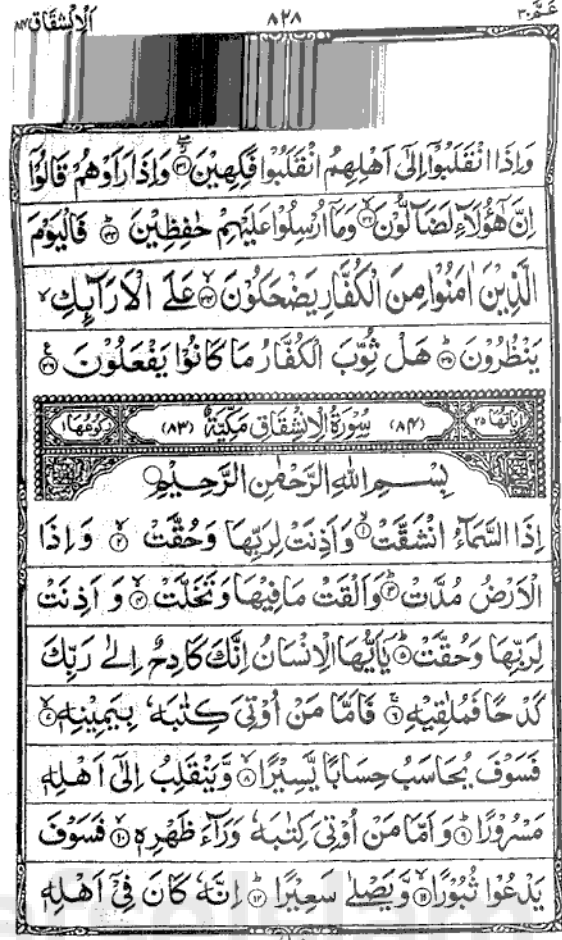 اَلْاِنْشِقَاق ٨٤
٨٢٨
عَمَّ ٣٠
وَاِذَا انْقَلَبُوْۤا اِلٰۤى اَهْلِهِمُ انْقَلَبُوْا فَكِهِيْنَ ٣١ وَاِذَا رَاَوْهُمْ قَالُوْۤا
اِنَّ هٰۤؤُلَآءِ لَضَآلُّوْنَ ٣٢ وَمَاۤ اُرْسِلُوْا عَلَيْهِمْ حٰفِظِيْنَ ٣٣ فَالْيَوْمَ
الَّذِيْنَ اٰمَنُوْا مِنَ الْكُفَّارِ يَضْحَكُوْنَ ٣٤ عَلَى الْاَرَآئِكِ
يَنْظُرُوْنَ ٣٥ هَلْ ثُوِّبَ الْكُفَّارُ مَا كَانُوْا يَفْعَلُوْنَ ٣٦
اٰيَاتُهَا ٢٥ (٨٤) سُوْرَةُ الْاِنْشِقَاقِ مَكِّيَّةٌ (٨٣) رُكُوْعُهَا ١
بِسْمِ اللّٰهِ الرَّحْمٰنِ الرَّحِيْمِ
اِذَا السَّمَآءُ انْشَقَّتْ ١ وَاَذِنَتْ لِرَبِّهَا وَحُقَّتْ ٢ وَاِذَا
الْاَرْضُ مُدَّتْ ٣ وَاَلْقَتْ مَا فِيْهَا وَتَخَلَّتْ ٤ وَاَذِنَتْ
لِرَبِّهَا وَحُقَّتْ ٥ يٰۤاَيُّهَا الْاِنْسَانُ اِنَّكَ كَادِحٌ اِلٰى رَبِّكَ
كَدْحًا فَمُلٰقِيْهِ ٦ فَاَمَّا مَنْ اُوْتِيَ كِتٰبَهٗ بِيَمِيْنِهٖ ٧
فَسَوْفَ يُحَاسَبُ حِسَابًا يَّسِيْرًا ٨ وَّيَنْقَلِبُ اِلٰۤى اَهْلِهٖ
مَسْرُوْرًا ٩ وَاَمَّا مَنْ اُوْتِيَ كِتٰبَهٗ وَرَآءَ ظَهْرِهٖ ١٠ فَسَوْفَ
يَدْعُوْا ثُبُوْرًا ١١ وَّيَصْلٰى سَعِيْرًا ١٢ اِنَّهٗ كَانَ فِيْۤ اَهْلِهٖ